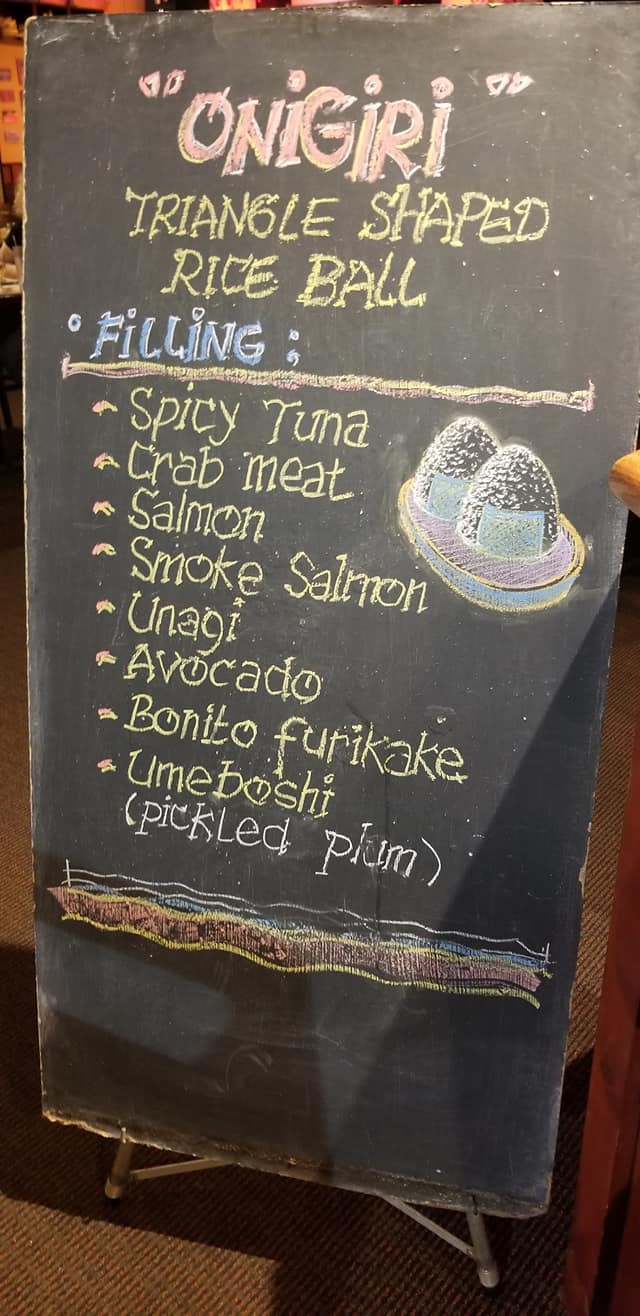 "ONIGIRI"
TRIANGLE SHAPED
RICE BALL
• FILLING :
Spicy Tuna
Crab meat
Salmon
Smoke Salmon
Unagi
Avocado
Bonito furikake
Umeboshi
(pickled plum)